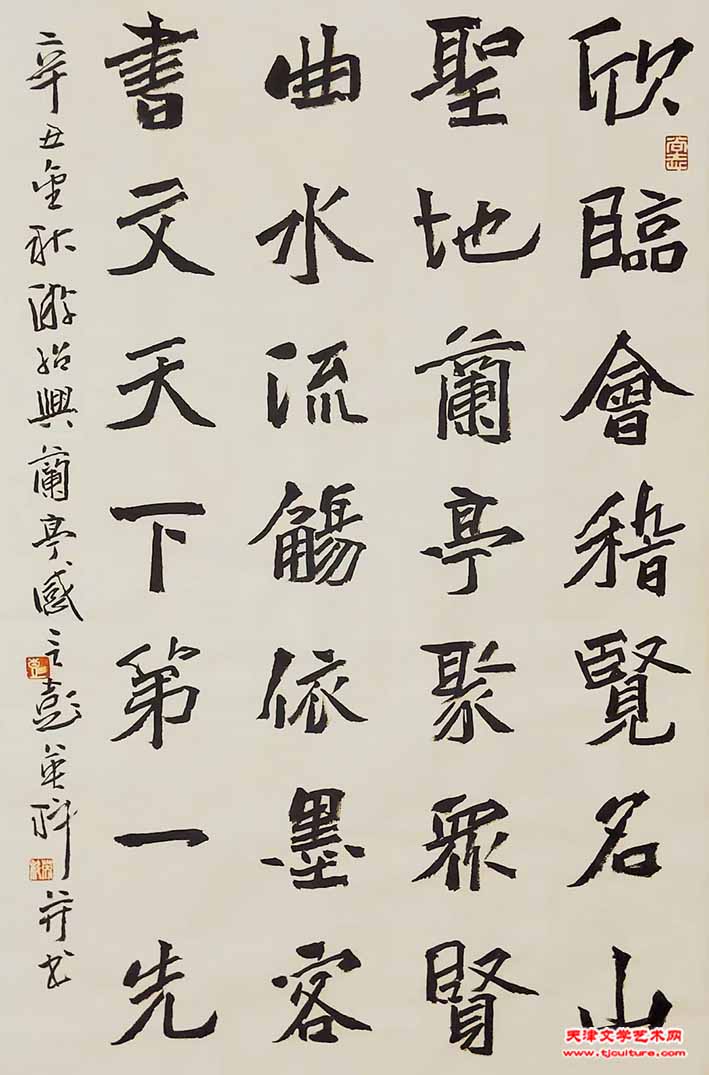 欣臨會稽覽名山
聖地蘭亭聚眾賢
曲水流觴依墨客
書文天下第一先
辛丑金秋游紹興蘭亭感之彭英科并書
天津文学艺术网
www.tjculture.com